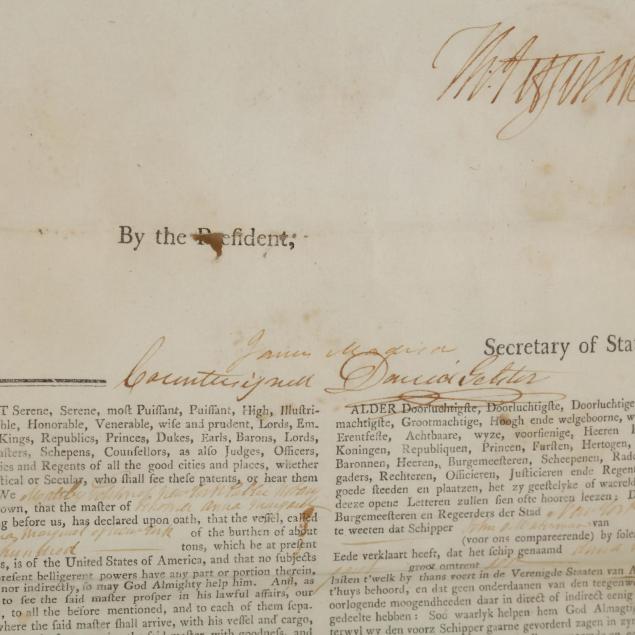 Th. Jefferson
By the President,
James Madison Secretary of Stat
Countersigned David Gelston
T Serene, Serene, moſt Puiſſant, Puiſſant, High, Illuſtri-
ble, Honorable, Venerable, wiſe and prudent, Lords, Em.
Kings, Republics, Princes, Dukes, Earls, Barons, Lords,
aſters, Schepens, Counſellors, as alſo Judges, Officers,
ies and Regents of all the good cities and places, whether
tical or Secular, who ſhall ſee theſe patents, or hear them
We
own, that the maſter of
g before us, has declared upon oath, that the veſſel, called
of the burthen of about
hundred tons, which he at preſent
s, is of the United States of America, and that no ſubjects
reſent belligerent powers have any part or portion therein,
nor indirectly, ſo may God Almighty help him. And, as
to ſee the ſaid maſter proſper in his lawful affairs, our
, to all the before mentioned, and to each of them ſepa-
where the ſaid maſter ſhall arrive, with his veſſel and cargo,
ALDER Doorluchtigſte, Doorluchtige
machtigſte, Grootmachtige, Hoogh ende welgeboorne, w
Erentfeſte, Achtbaare, wyze, voorſienige, Heeren
Koningen, Republiquen, Princen, Furſten, Hertogen,
Baronnen, Heeren, Burgemeeſteren, Scheepenen, Rade
gaders, Rechteren, Officieren, Juſticieren ende Regen
goede ſteeden en plaatzen, het zy geeſtelyke of wæreld
deeze opene Letteren zullen ſien ofte hooren leezen;
Burgemeeſteren en Regeerders der Stad New York
te weeten dat Schipper van
(voor ons compareerende) by ſole
Eede verklaart heeft, dat het ſchip genaamd
groot omtrent
laſten t'welk by thans voert in de Verenigde Staten van A
t'huys behoord, en dat geen onderdaanen van den teegenw
oorlogende moogendheeden daar in direct of indirect eenig
gedeelte hebben: Soo waarlyk helpen hem God Almagtig
terwyl wy den voorz Schipper gaarne gevorderd zagen in zy